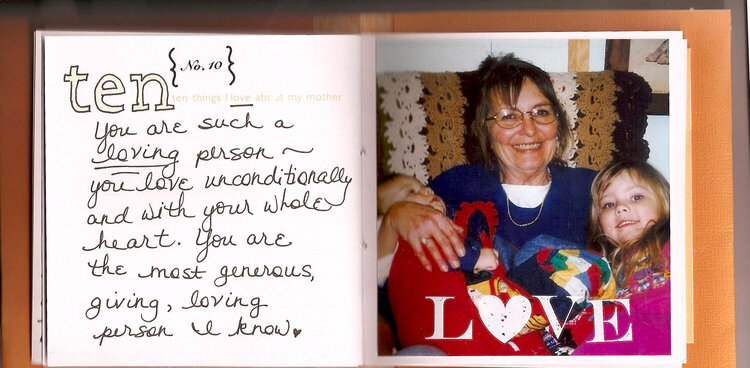 ten {No. 10}
ten things I love about my mother
You are such a
loving person ~
you love unconditionally
and with your whole
heart. You are
the most generous,
giving, loving
person I know.
LOVE